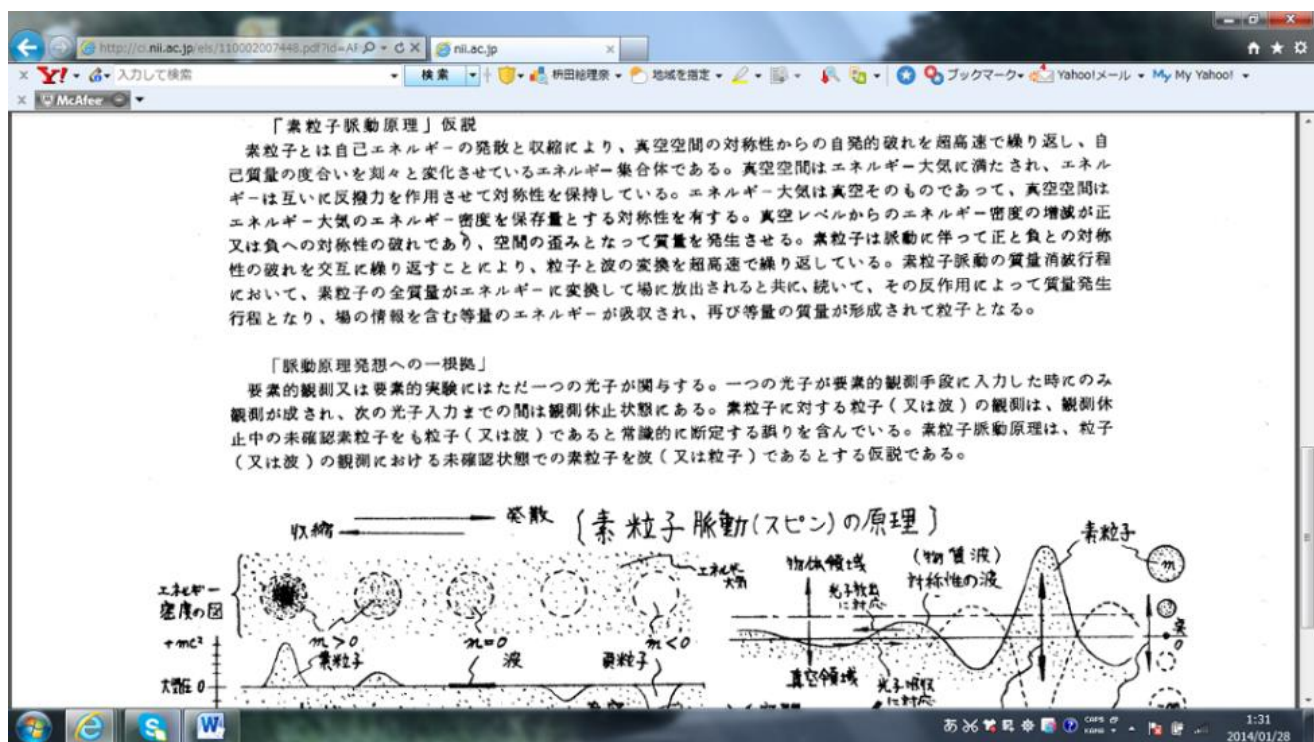 http://ci.nii.ac.jp/els/110002007448.pdf?id=AF
nii.ac.jp
Y!
入力して検索
検索
枡田絵理奈
地域を指定
ブックマーク
Yahoo!メール
My Yahoo!
McAfee
「素粒子脈動原理」仮説
素粒子とは自己エネルギーの発散と収縮により、真空空間の対称性からの自発的破れを超高速で繰り返し、自
己質量の度合いを刻々と変化させているエネルギー集合体である。真空空間はエネルギー大気に満たされ、エネル
ギーは互いに反撥力を作用させて対称性を保持している。エネルギー大気は真空そのものであって、真空空間は
エネルギー大気のエネルギー密度を保存量とする対称性を有する。真空レベルからのエネルギー密度の増減が正
又は負への対称性の破れであり、空間の歪みとなって質量を発生させる。素粒子は脈動に伴って正と負との対称
性の破れを交互に繰り返すことにより、粒子と波の変換を超高速で繰り返している。素粒子脈動の質量消滅行程
において、素粒子の全質量がエネルギーに変換して場に放出されると共に、続いて、その反作用によって質量発生
行程となり、場の情報を含む等量のエネルギーが吸収され、再び等量の質量が形成されて粒子となる。
「脈動原理発想への一根拠」
要素的観測又は要素的実験にはただ一つの光子が関与する。一つの光子が要素的観測手段に入力した時にのみ
観測が成され、次の光子入力までの間は観測休止状態にある。素粒子に対する粒子(又は波)の観測は、観測休
止中の未確認素粒子をも粒子(又は波)であると常識的に断定する誤りを含んでいる。素粒子脈動原理は、粒子
(又は波)の観測における未確認状態での素粒子を波(又は粒子)であるとする仮説である。
収縮
発散
〔素粒子脈動(スピン)の原理〕
エネルギー
密度の図
エネルギー
大気
m>0
m=0
m<0
+mc²
素粒子
波
大気圧 0
物体領域
(物質波)
対称性の波
素粒子
m
光子放出
に対応
0
真空領域
光子吸収
に対応
あ
CAPS
KANA
1:31
2014/01/28